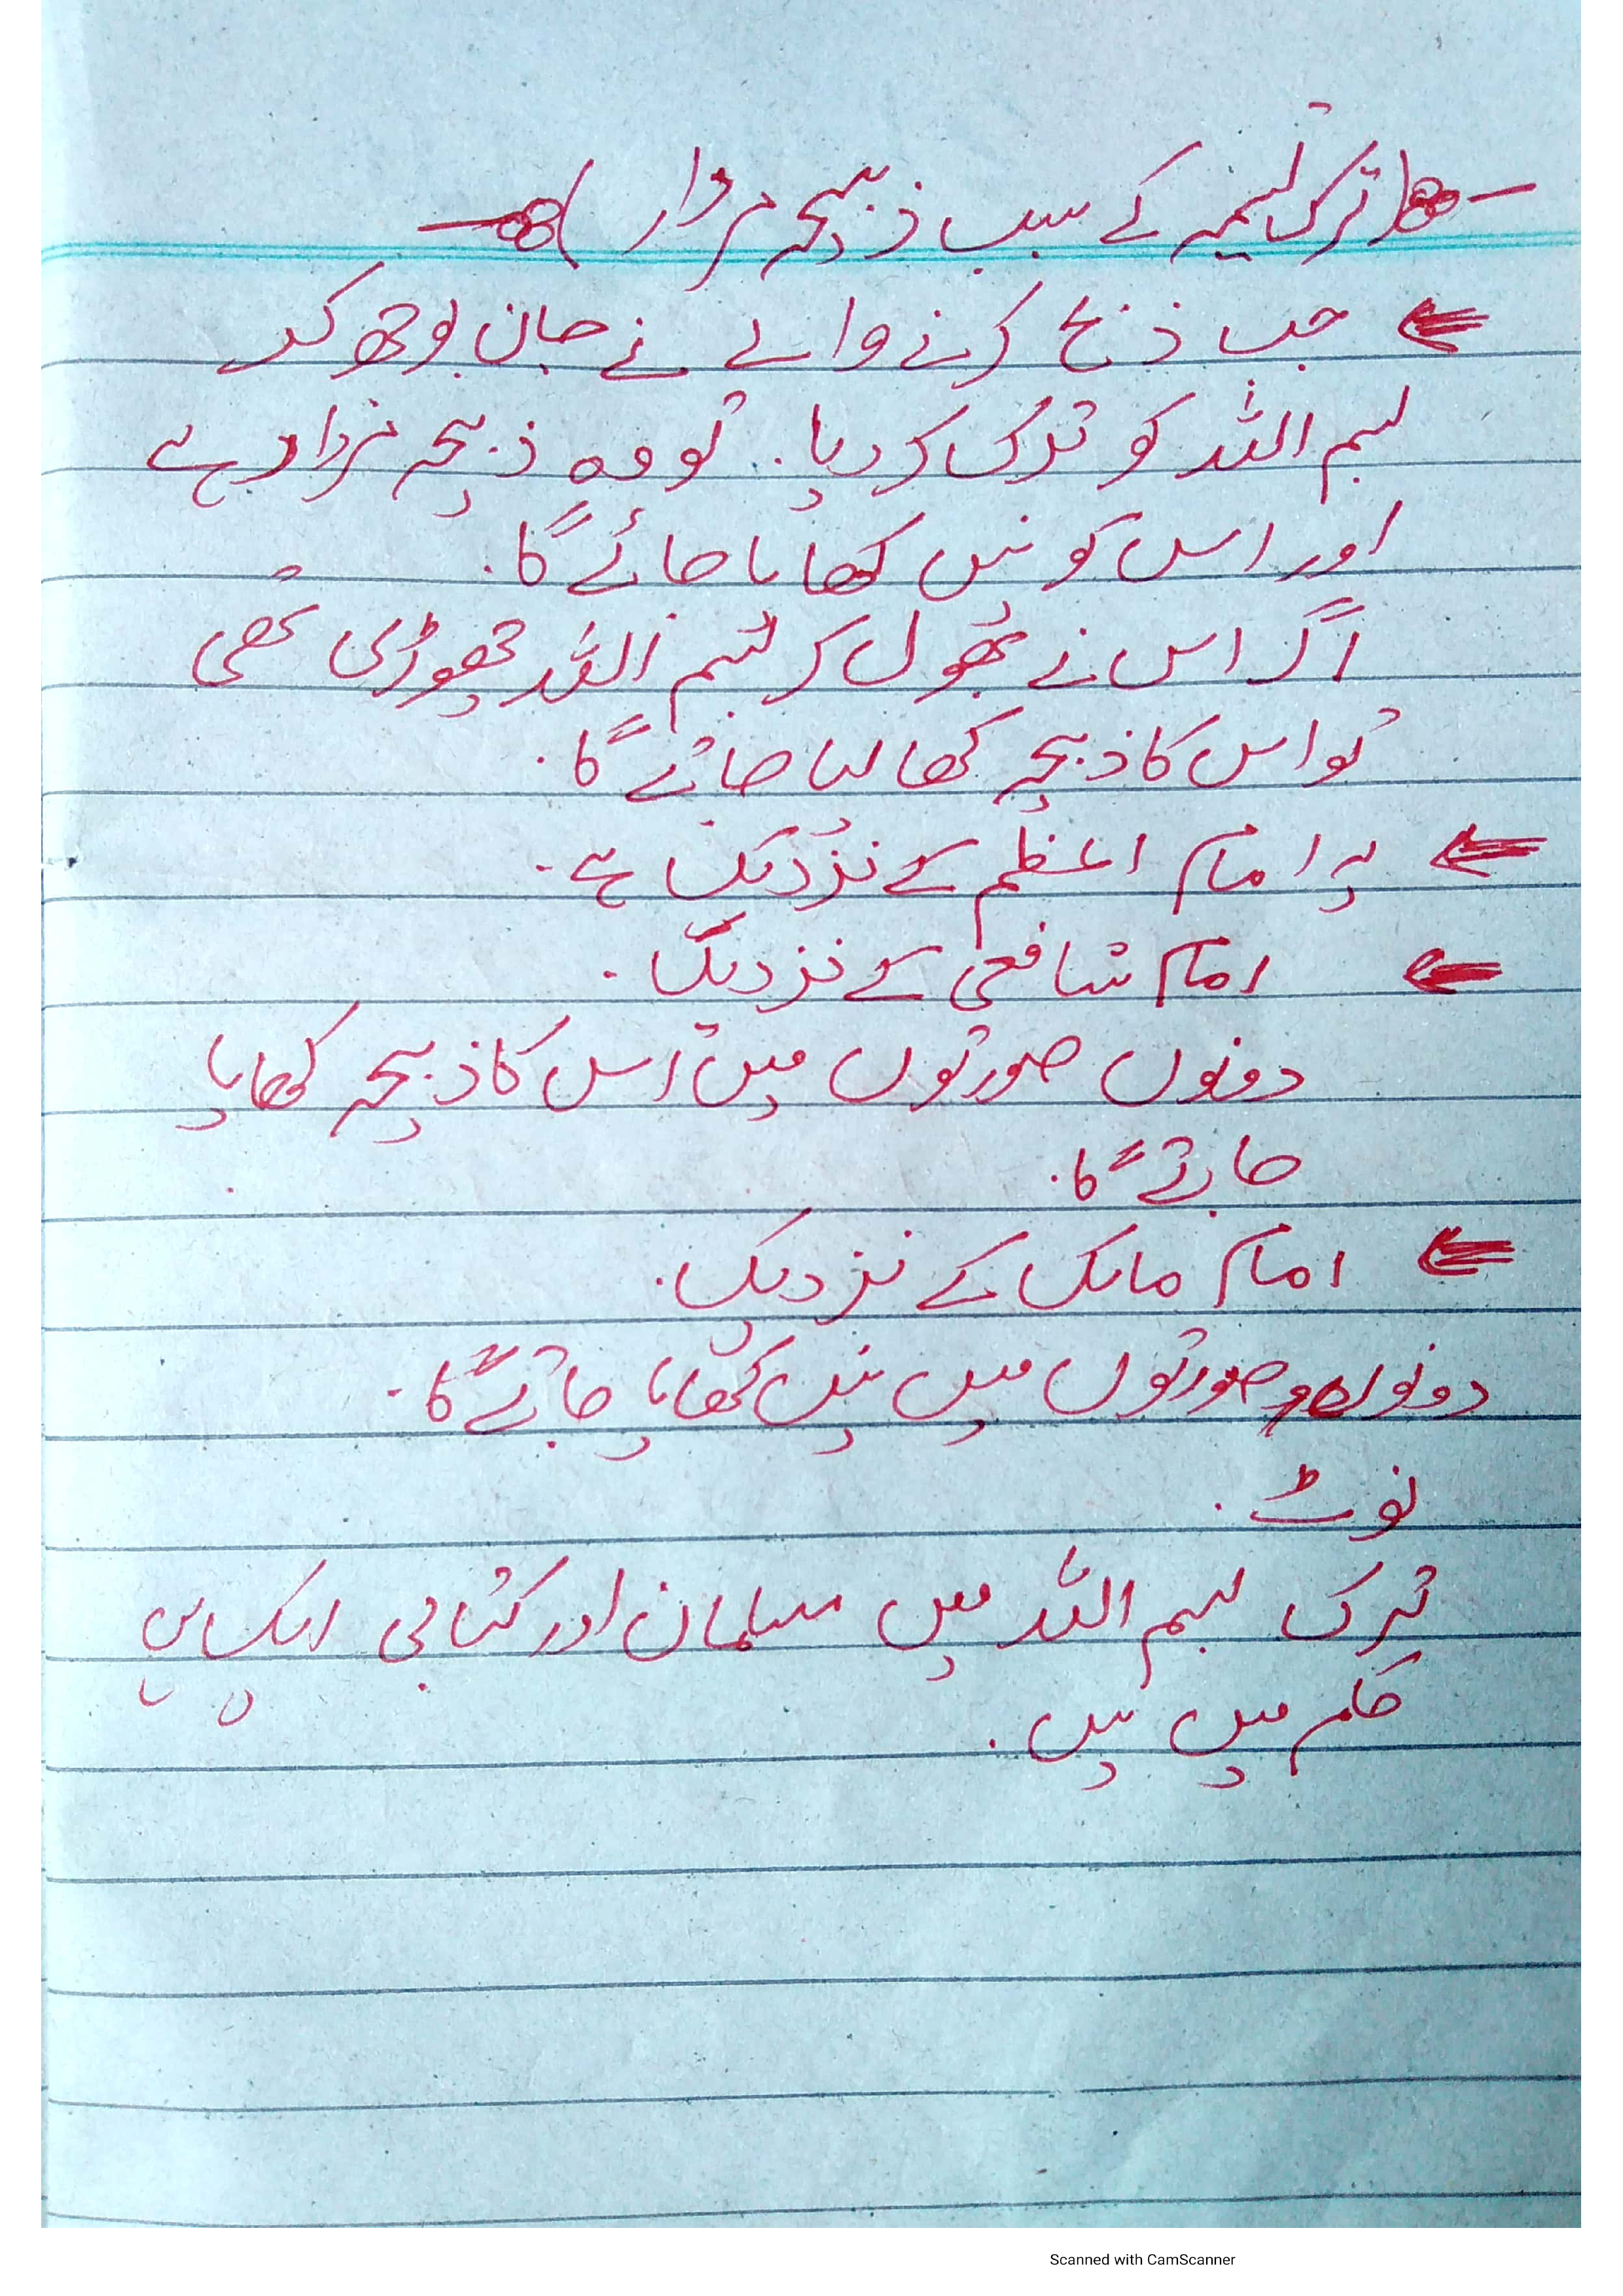 (ترک تسمیہ کے سبب ذبیحہ مردار)
جب ذبح کرنے والے نے جان بوجھ کر
بسم اللہ کو ترک کر دیا. تو وہ ذبیحہ مردار ہے
اور اس کو نہیں کھایا جائے گا.
اگر اس نے بھول کر بسم اللہ چھوڑی تھی
تو اس کا ذبیحہ کھا لیا جائے گا.
یہ امام اعظم کے نزدیک ہے.
امام شافعی کے نزدیک.
دونوں صورتوں میں اس کا ذبیحہ کھایا
جائے گا.
امام مالک کے نزدیک.
دونوں صورتوں میں نہیں کھایا جائے گا.
نوٹ.
ترک بسم اللہ میں مسلمان اور کتابی ایک ہی
حکم میں ہیں.
Scanned with CamScanner